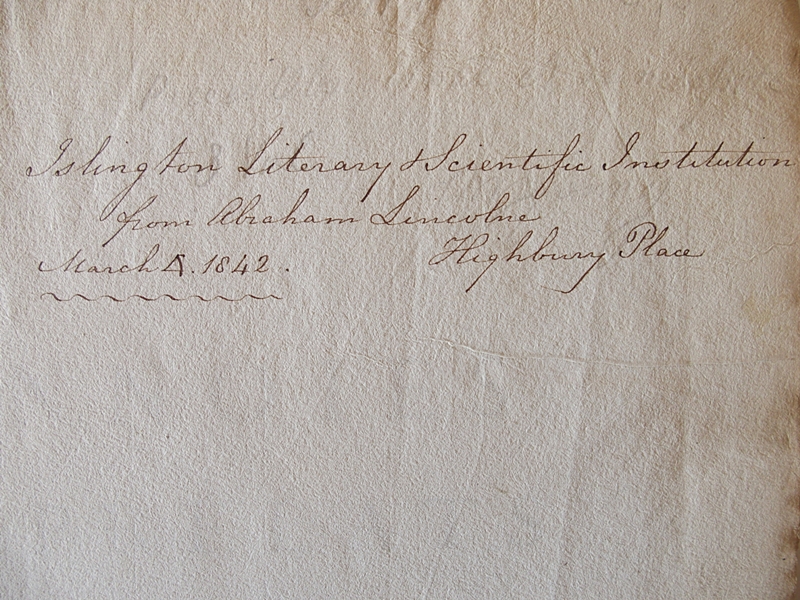 Islington Literary & Scientific Institution
from Abraham Lincolne
March 4. 1842.
Highbury Place